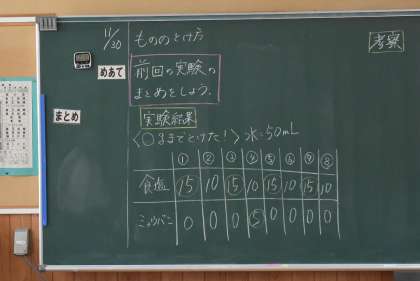 11/30
もののとけ方
考察
めあて
前回の実験の
まとめをしよう。
まとめ
実験結果
〈○gまでとけた!〉 水:50mL
① ② ③ ④ ⑤ ⑥ ⑦ ⑧
食塩 15 10 15 10 15 10 15 10
ミョウバン 0 0 0 5 0 0 0 0